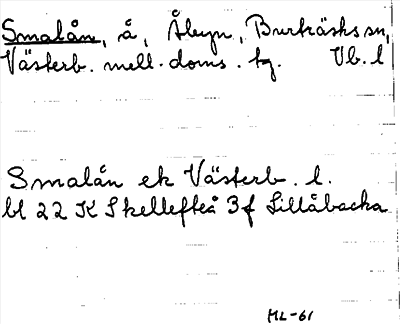 Smalån, å, Åbyn, Burträsks sn,
Västerb. mell. doms. tg. Vb. l
Smalån ek Västerb. l.
bl 22 K Skellefteå 3f Lillåbacka
ML-61